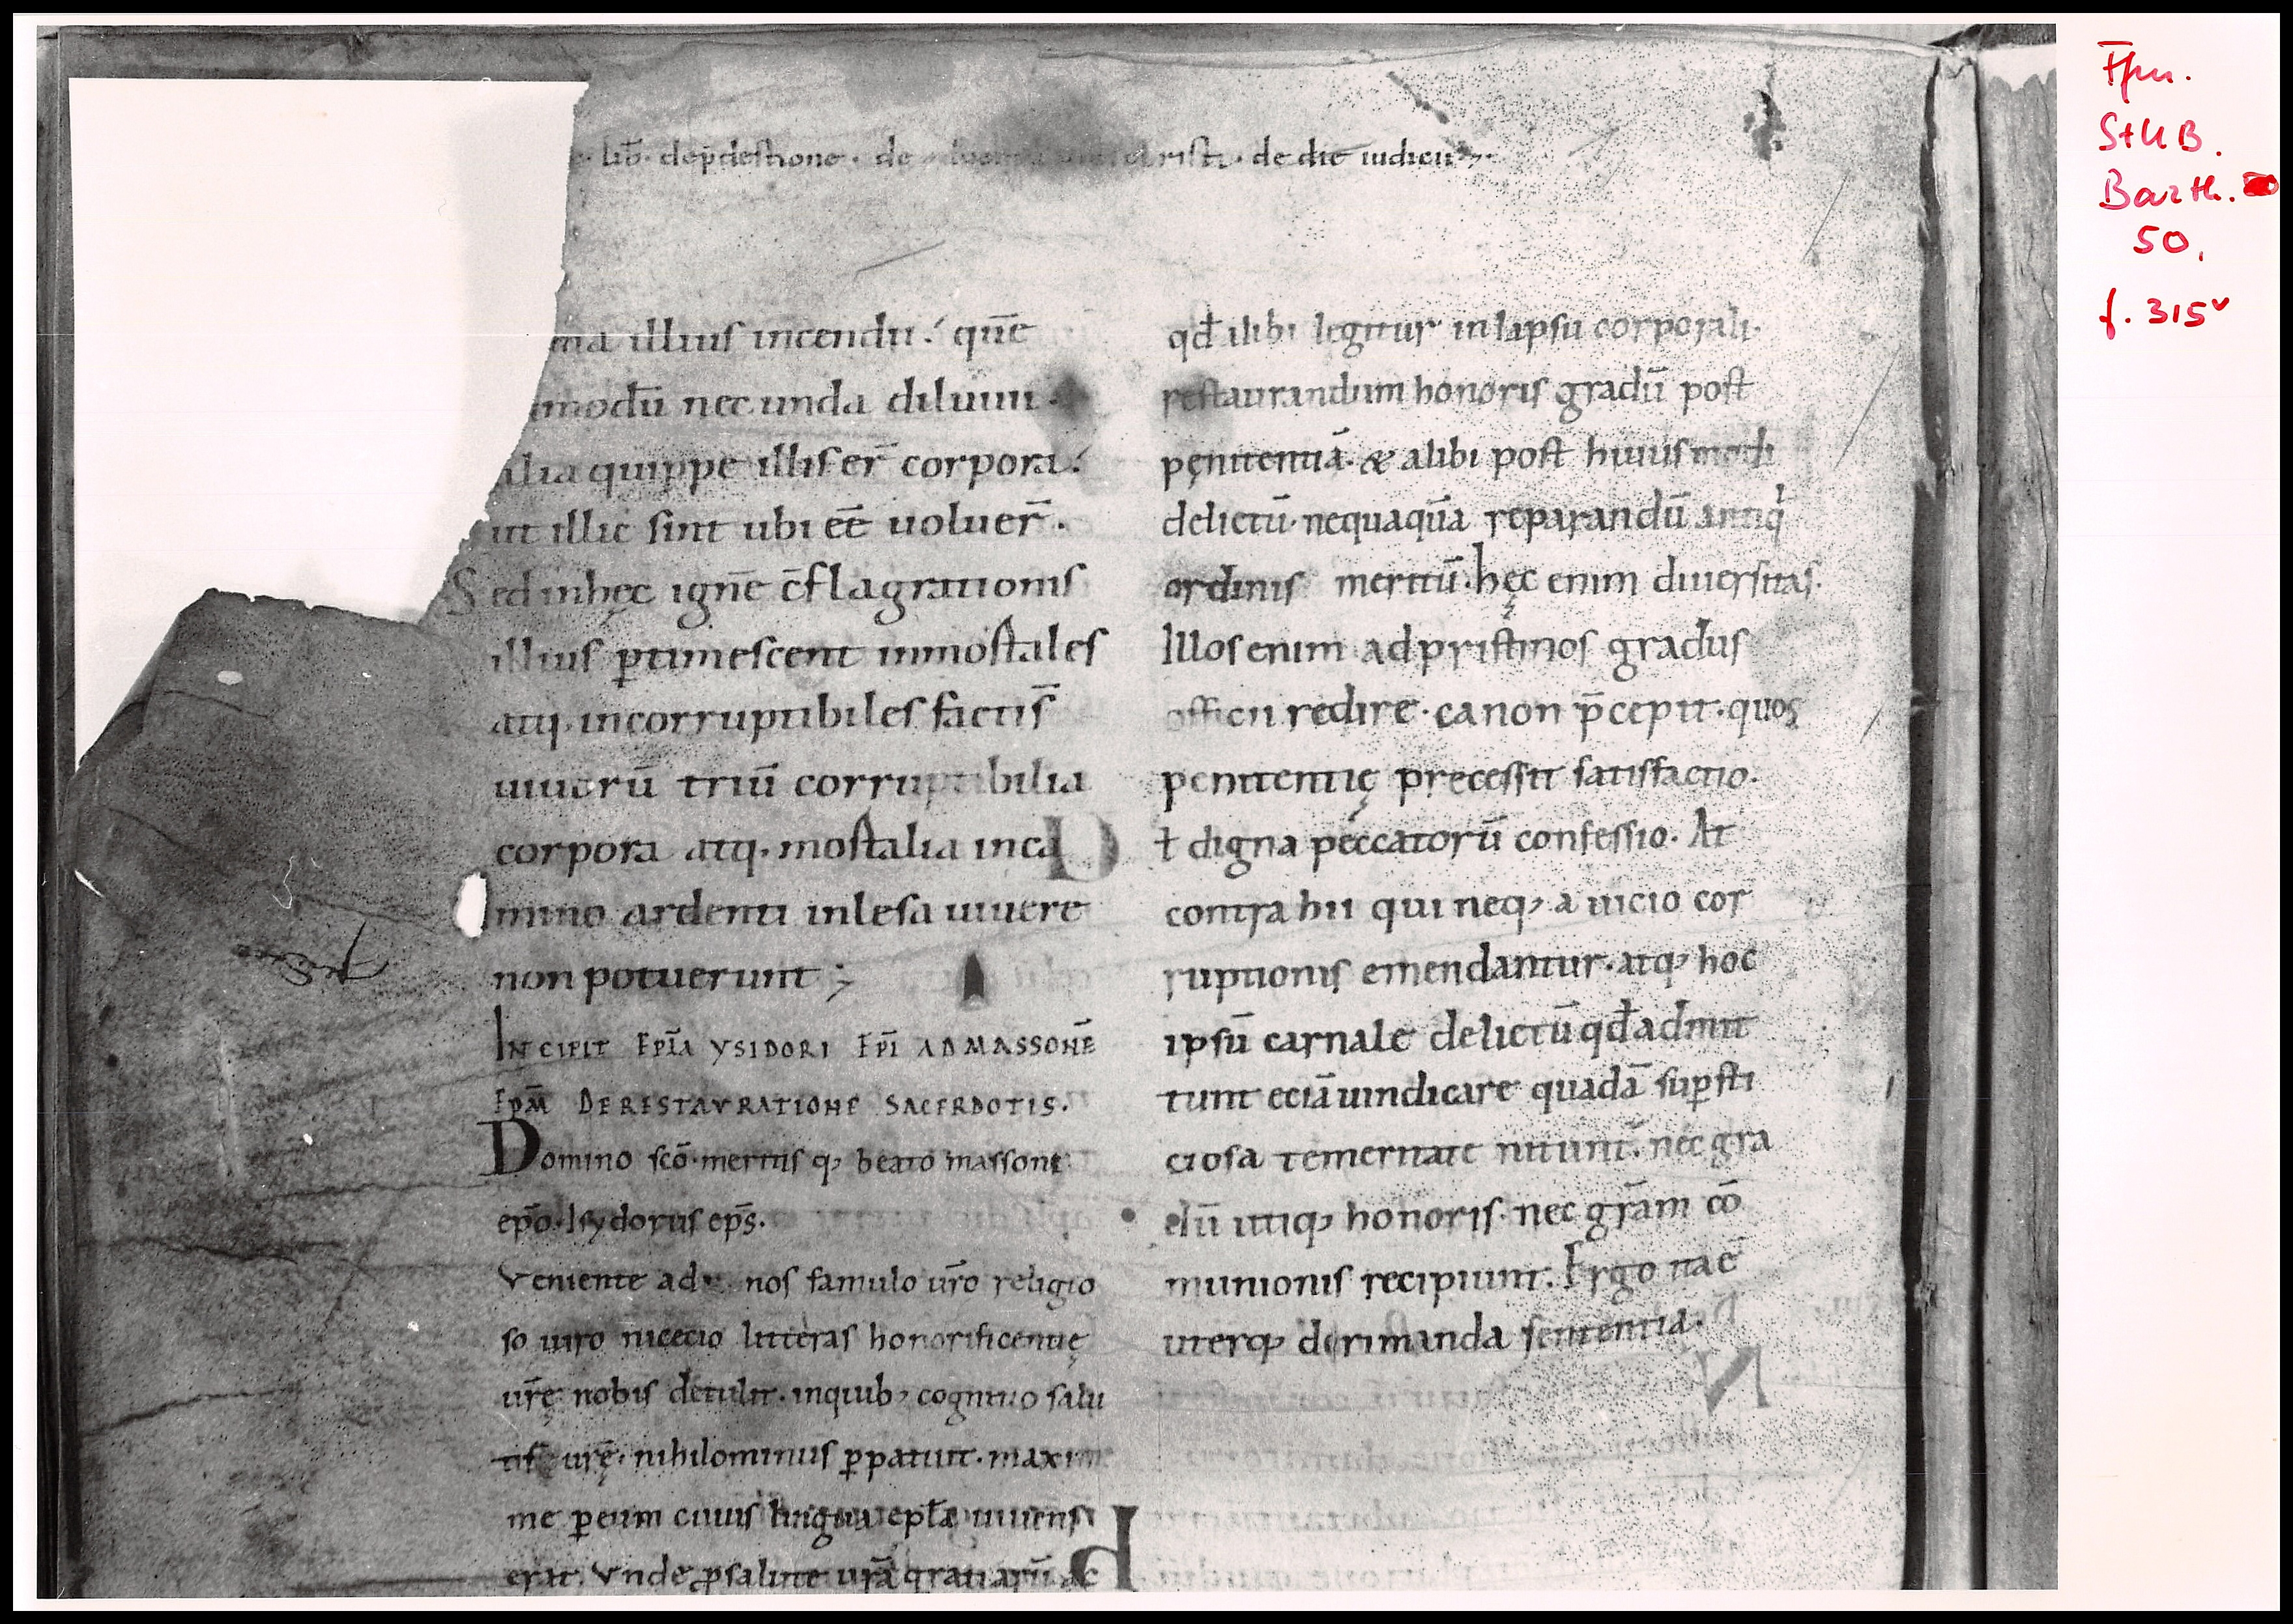 lib̄. dep̄destione. de die iudicii
illius incendii? quē
modū nec unda diluuii.
alia quippe illis er̄ corpora.
ut illic sint ubi eē uoluer̄.
Sed inhęc ignē c̄flagrationis
illius ptimescent inmortales
atq. incorruptibiles factis̄
uiuorū triū corruptibilia
corpora atq. mortalia inca
mino ardenti inlesa uiuere
non potuerunt;
INCIPIT EPĪA YSIDORI EPĪ AD MASSONĒ
EPM̄ DE RESTAVRATIONE SACERDOTIS.
Domino scō meritis q; beato massone
epō. Isydorus ep̄s.
Veniente ad nos famulo ur̄o religio
so uiro nicecio litteras honorificentię
ur̄ę nobis detulit. inquib; cognitio salu
tis ur̄ę. nihilominus ppatuit. maxim
me peum cuius lingua eptā uiuens
erat. Vnde psalute urā gratiarū ac
qd̄ ilibi legitur inlapsu corporali.
restaurandum honoris gradū post
pęnitentiā. & alibi post huiusmodi
delictū. nequaquā reparandū antiq
ordinis meritū. hęc enim diuersitas.
Illos enim adpristinos gradus
officii redire. canon p̄cepit. quos
penitentię precessit satisfactio.
ł digna peccatorū confessio. At
contra hii qui neq; a uicio cor
ruptionis emendantur. atq; hoc
ipsū carnale delictū qd̄ admit
tunt eciā uindicare quadā supsti
ciosa temeritate nitunt̄. nec gra
dū utiq; honoris. nec gr̄am cō
munionis recipiunt. Ergo itaē
uterq; dirimanda sententia.
Ffm.
StUB.
Barth.
50,
f. 315v